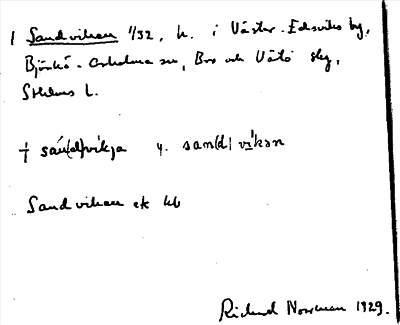 1 Sandviken 1/32, h. i Väster-Edsviks by,
Björkö-Arholma sn, Bro och Vätö skg,
Sthlms l.
† sán(d)vikja y. san(d)vikən
Sandviken ek kb
Rickard Norrman 1929.